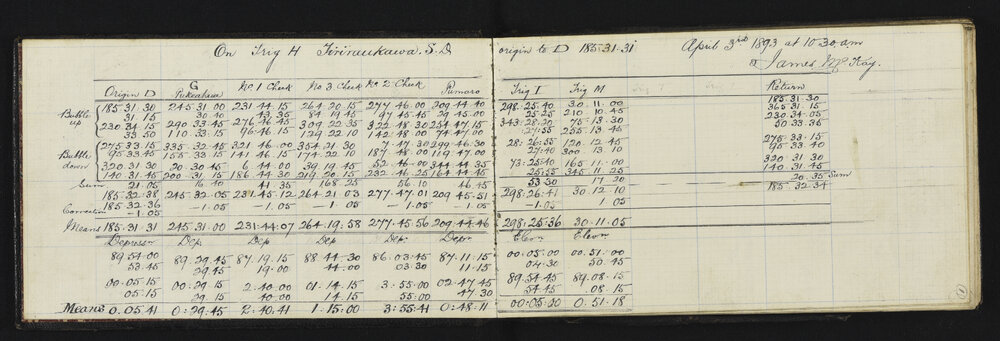 On Trig H Tiriraukawa. S.D. origin to D 185.31.31 April 3rd 1893 at 10.30 am
James McKay.
Origin D G Pukenhaua No 1 Check No 3 Check No 2 Check Pumoro Trig I Trig M Return
Bubble up 185.31.30 245.31.00 231.44.15 264.20.15 277.46.00 209.44.40 298.25.40 30.11.00 185.31.30
31.15 30.40 43.35 84.19.45 97.45.45 29.45.00 25.25 210.10.45 365.31.15
230.34.15 290.33.45 276.46.45 309.22.35 322.48.30 254.47.15 343.28.20 75.13.30 230.34.05
33.50 110.33.15 96.46.15 129.22.10 142.48.00 74.47.00 27.55 255.13.45 50.33.35
Bubble down 275.33.15 335.32.45 321.46.00 354.21.30 7.47.30 299.46.30 28:26:55 120.12.45 275.33.15
95.33.45 155.33.15 141.46.15 174.22.10 187.48.00 119.47.00 27:40 300.13.10 95.33.40
320.31.30 20.30.45 6.44.00 39.19.45 52.46.00 344.44.35 73:25:40 165.11.00 320.31.30
140.31.45 200.31.15 186.44.30 219.20.15 232.46.25 164.44.45 25:55 345.11.25 140.31.45
Sum 21.05 16.40 41.35 168.25 56.10 46.45 53.30 17.30 20.35 Sum
185.32.38 245.32.05 231.45.12 264.21.03 277.47.01 209.45.51 298.26.41 30.12.10 185.32.34
185.32.36
Correction -1.05 -1.05 -1.05 -1.05 -1.05 -1.05 -1.05 1.05
Means 185.31.31 245.31.00 231.44.07 264.19.58 277.45.56 209.44.46 298.25.36 30.11.05
Depressn Dep. Dep Dep Dep. Depn Elevn Elevn
89.54.00 89.29.45 87.19.15 88.44.30 86.03.45 87.11.15 00.05.00 00.51.00
53.45 29.45 19.00 44.00 03.30 11.15 04.30 50.45
00.05.15 00.29.15 2.40.00 01.14.15 3.55.00 02.47.45 89.54.45 89.08.15
05.15 29.15 40.00 14.15 55.00 47.30 54.45 .08.15
Means 0.05.41 0.29.45 2.40.41 1.15.00 3.55.41 0.48.11 00.05.00 0.51.18
1